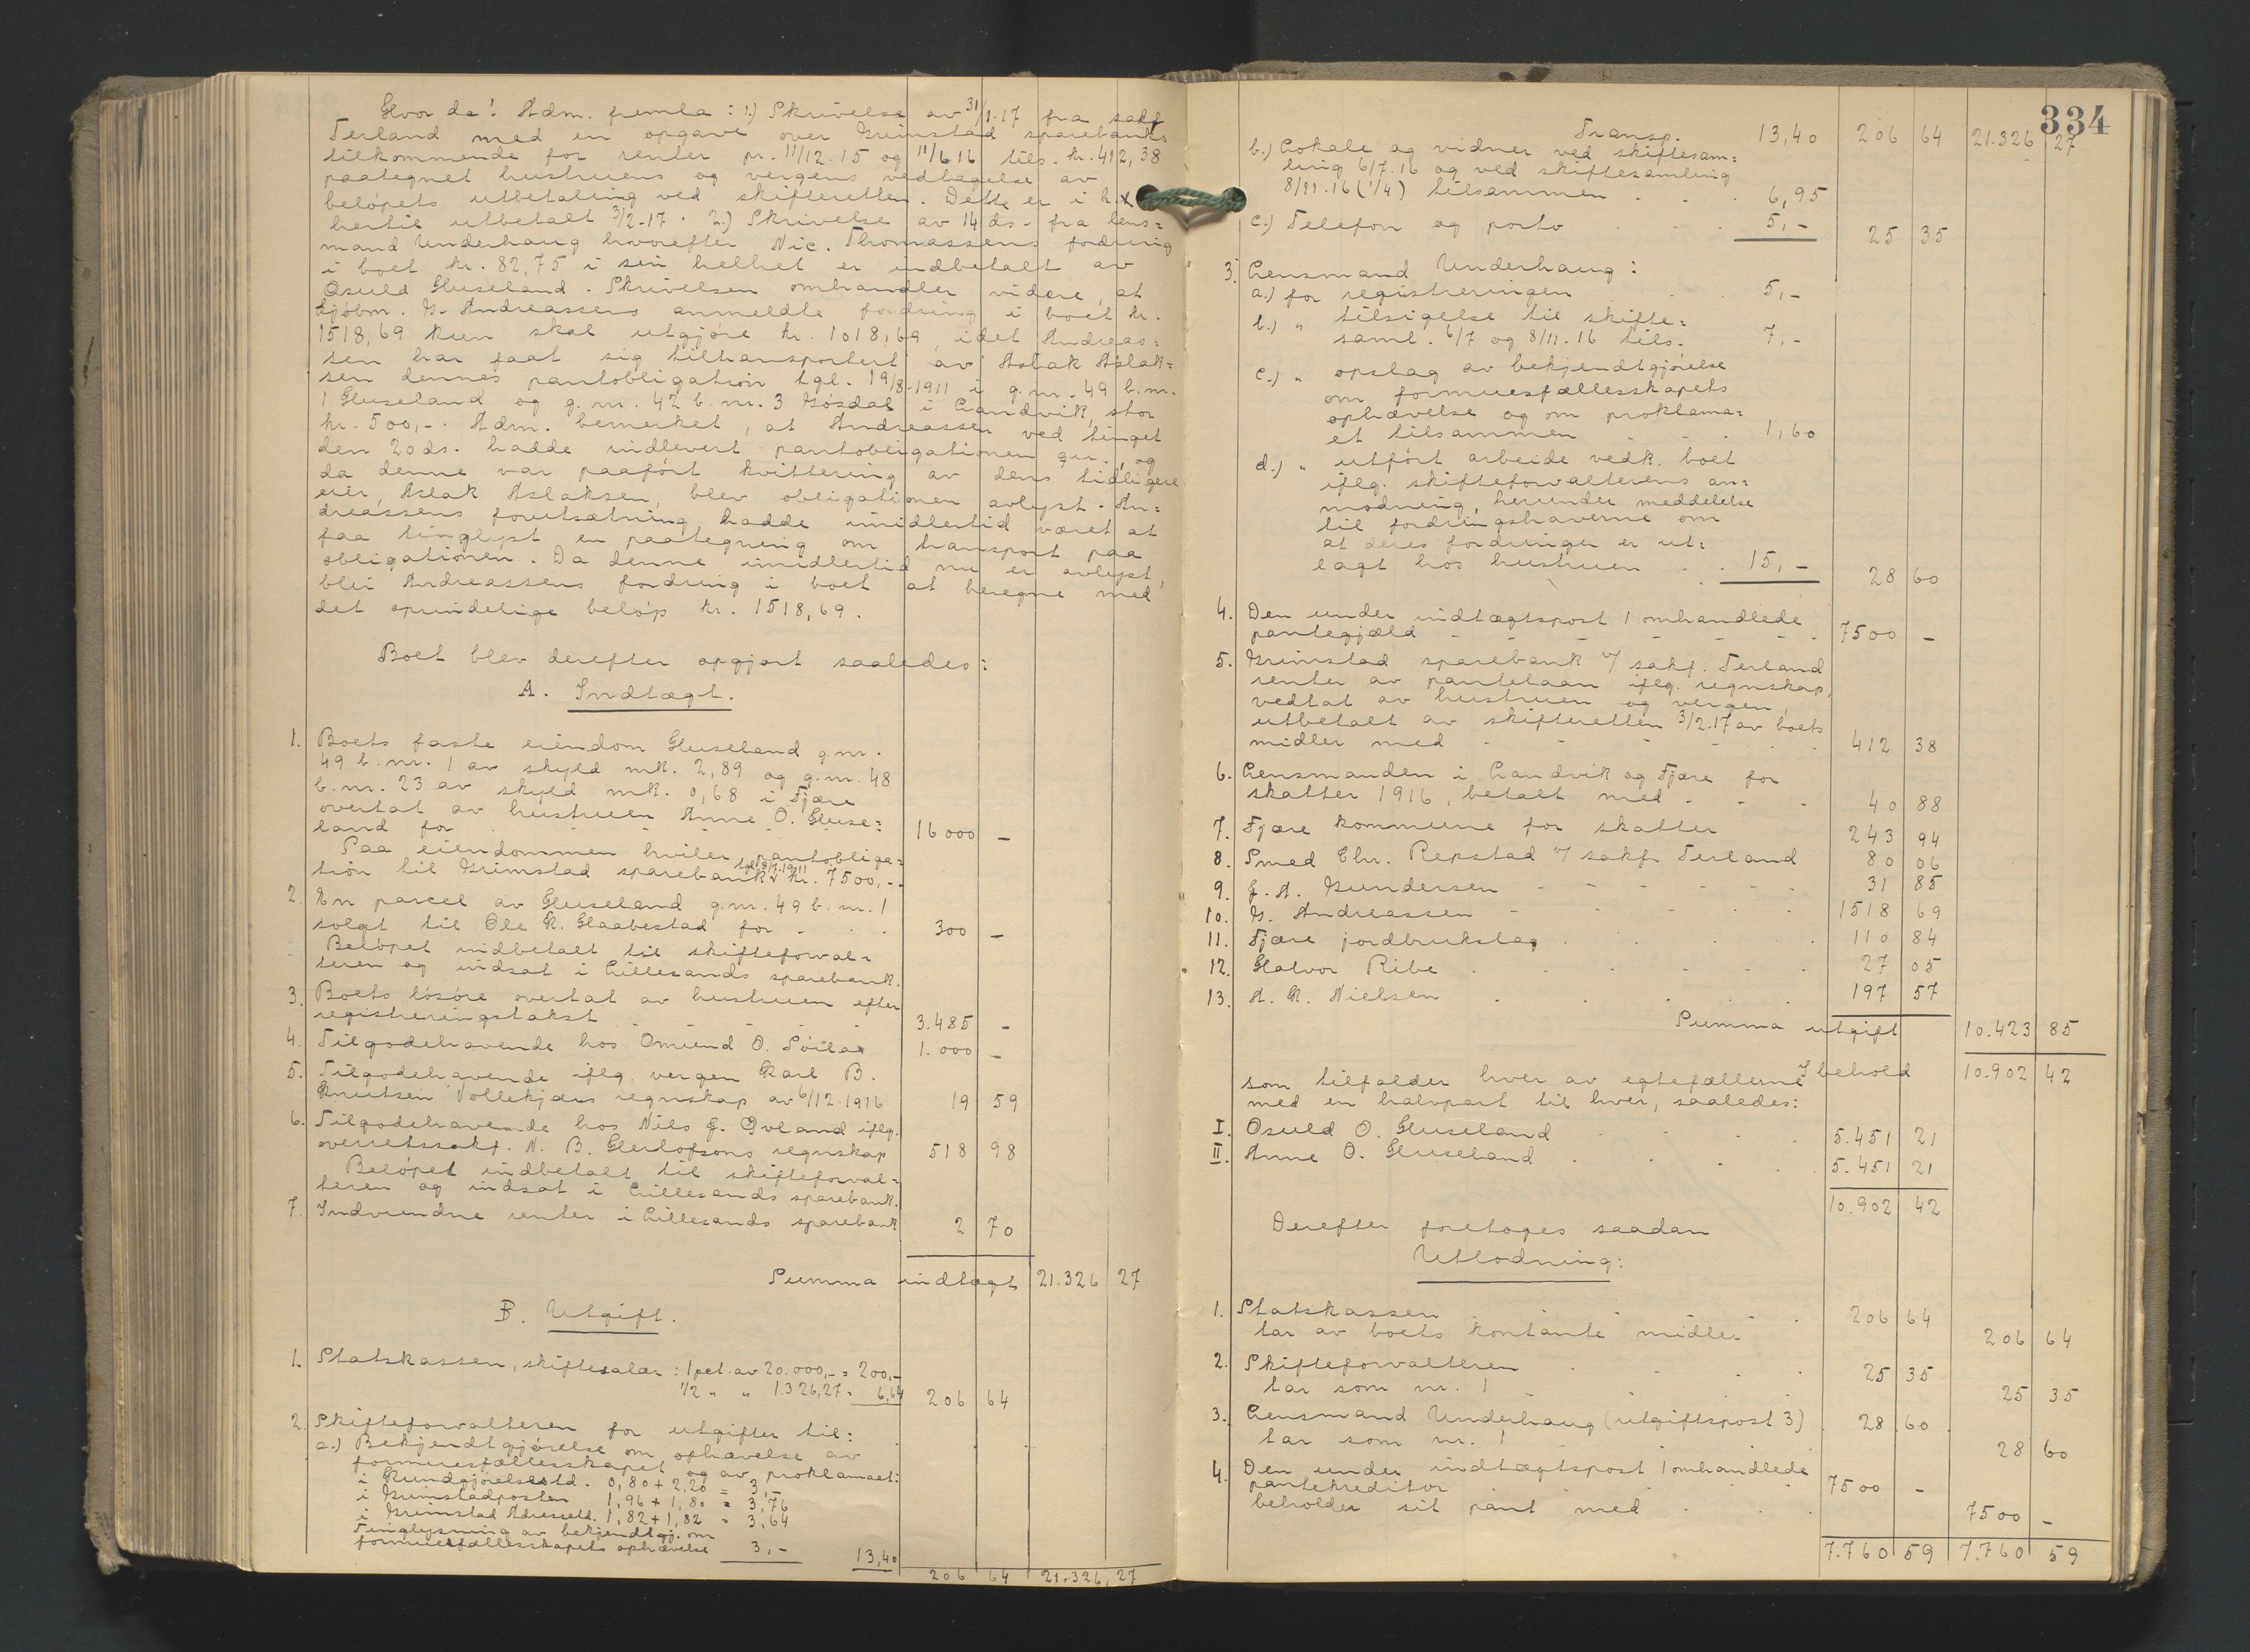 Hvor da! Adm. fremla: 1.) Skrivelse av 31/1.17 fra sakf
Terland med en opgave over Grimstad sparebanks
tilkommende for renter pr. 11/12.15 og 11/6.16 tils. kr. 412,38
paategnet hustruens og vergens vedtagelse av
beløpets utbetaling ved skifteretten. Dette er i h.
hertil utbetalt 3/2-17. 2.) Skrivelse av 14 ds. fra lens=
mand Underhaug hvorefter Nic. Thomassens fordring
i boet kr. 82,75 i sin helhet er indbetalt av
Osuld Huseland. Skrivelsen omhandler videre, at
kjøbm. G. Andreassens anmeldte fordring i boet kr.
1518,69 kun skal utgjøre kr. 1018,69, idet Andreas=
sen har faat sig tiltransportert av Aslak Aslak=
sen dennes pantobligation tgl. 19/8-1911 i g.nr. 49 b.nr.
1 Huseland og g.nr. 42 b.nr. 3 Gøsdal i Landvik, stor
kr. 500,-. Adm. bemerket, at Andreassen ved tinget
den 20 ds. hadde indlevert pantobligationen qu., og
da denne var paaført kvittering av dens tidligere
eier, Aslak Aslaksen, blev obligationen avlyst. An=
dreassens forutsætning hadde imidlertid været at
faa tinglyst en paategning om transport paa
obligationen. Da denne imidlertid nu er avlyst,
blir Andreassens fordring i boet at beregne med
det oprindelige beløp kr. 1518,69.
Boet blev derefter opgjort saaledes:
A. Indtægt.
1. Boets faste eiendom Huseland g.nr.
49 b.nr. 1 av skyld mk. 2,89 og g.nr. 48
b.nr. 23 av skyld mk. 0,68 i Fjære
overtat av hustruen Anne O. Huse=
land for 16000 -
Paa eiendommen hviler pantobliga=
tion til Grimstad sparebank tgl. 18/7.1911 kr. 7500,-
2. En parcel av Huseland g.nr. 49 b.nr. 1
solgt til Ole K. Haabestad for 300 -
Beløpet indbetalt til skifteforval=
teren og indsat i Lillesands sparebank.
3. Boets løsøre overtat av hustruen efter
registreringstakst 3.485 -
4. Tilgodehavende hos Omund O. 1.000 -
5. Tilgodehavende iflg. vergen Karl B.
Knutsen Vollekjærs regnskap av 6/12.1916 19 59
6. Tilgodehavende hos Nils J. Øvland iflg.
overretssakf. N. B. Herlofsons regnskap 518 98
Beløpet indbetalt til skifteforval=
teren og indsat i Lillesands sparebank.
7. Indvundne renter i Lillesands sparebank 2 70
Summa indtægt 21.326 27
B. Utgift.
1. Statskassen, skiftesalær: 1 pct. av 20.000,- = 200,-
1/2 " " 1.326,27 = 6,64 206 64
2. Skifteforvalteren for utgifter til:
a.) Bekjendtgjørelse om ophævelse av
formuesfællesskapet og av proklamaet:
i Kundgjørelsestd. 0,80 + 2,20 = 3,-
i Grimstadposten 1,96 + 1,80 = 3,76
i Grimstad Adressetd. 1,82 + 1,82 = 3,64
Tinglysning av bekjendtgj. om
formuesfællesskapets ophævelse 3,- 13,40
206 64 21.326,27
334
Transp. 13,40 206 64 21.326 27
b.) Lokale og vidner ved skiftesam=
ling 6/7.16 og ved skiftesamling
8/11.16 (1/4) tilsammen 6,95
c.) Telefon og porto 5,- 25 35
3. Lensmand Underhaug:
a.) for registreringen 5,-
b.) " tilsigelse til skifte=
saml. 6/7 og 8/11.16 tils. 7,-
c.) " opslag av bekjendtgjørelse
om formuesfællesskapets
ophævelse og om proklama=
et tilsammen 1,60
d.) " utført arbeide vedk. boet
iflg. skifteforvalterens an=
modning, herunder meddelelse
til fordringshaverne om
at deres fordringer er ut=
lagt hos hustruen 15,- 28 60
4. Den under indtægtspost 1 omhandlede
pantegjæld 7500 -
5. Grimstad sparebank v/ sakf. Terland
renter av pantelaan iflg. regnskap,
vedtat av hustruen og vergen,
utbetalt av skifteretten 3/2.17 av boets
midler med 412 38
6. Lensmanden i Landvik og Fjære for
skatter 1916, betalt med 40 88
7. Fjære kommune for skatter 243 94
8. Smed Chr. Repstad v/ sakf. Terland 80 06
9. J. A. Gundersen 31 85
10. G. Andreassen 1518 69
11. Fjære jordbrukslag 110 84
12. Halvor Ribe 27 05
13. A. K. Nielsen 197 57
Summa utgift 10.423 85
I behold 10.902 42
som tilfalder hver av egtefællerne
med en halvpart til hver, saaledes:
I. Osuld O. Huseland 5.451 21
II. Anne O. Huseland 5.451 21
10.902 42
Derefter foretoges saadan
Utlodning:
1. Statskassen 206 64
tar av boets kontante midler 206 64
2. Skifteforvalteren 25 35
tar som nr. 1 25 35
3. Lensmand Underhaug (utgiftspost 3) 28 60
tar som nr. 1 28 60
4. Den under indtægtspost 1 omhandlede
pantekreditor 7500 -
beholder sit pant med 7500 -
7.760 59 7.760 59